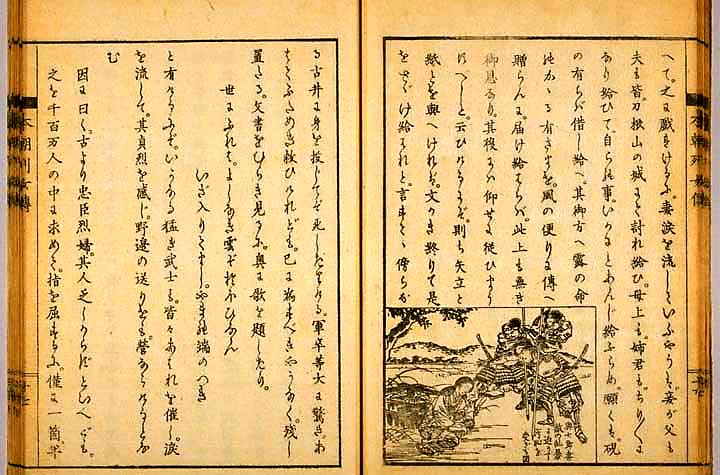 本朝列女傳
へて。之に戯をけるに。妻涙を流していふやうも。妾が父も
夫も皆刀根山の城にて討れ給ひ。母上も。姉君もちり〴〵に
あり給ひて。自らの事。いかにとあんじ給ふらめ。願くも。硯
の有らば借し給へ。其御方へ露の命
はかゝる有さまを。風の便りに傳へ
贈らんに。届け給はらバ。此上も無き
御恩なり。其後にハ仰せに従ひ
べしと。云ひ則ち矢立と
紙とを與へけれバ。文かき終りて是
をさづけ給はれと。言傍らな
る古井に身を投じてぞ死したりける。軍卒等大に驚き。あ
はてふためき救ひけれども。已に為すべきやうなく。残し
置たる。文書をひらき見るに。奥に歌を題したり。
世にふれは。よしなき雲ぞおほふらん
いざ入りてまし。やまの端のつき
と有りけるにぞ。いかなる猛き武士も。皆々あはれを催し。涙
を流して。其貞烈を感じ。野邊の送りをも。営みけるとな
む
因に曰く。古より忠臣烈婦。其人乏しからずといへども。
之を千百万人の中に求めて。指を屈するに。僅に一箇。半
本朝列女傳